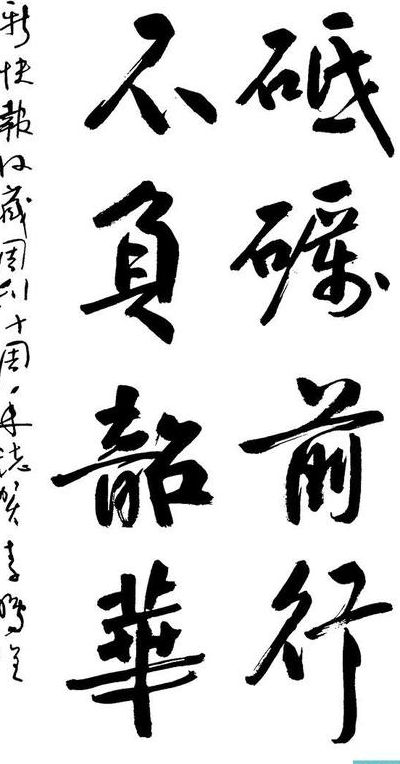 砥礪前行
不負韶華
新快報收藏周刊十周年誌贺 李鹏